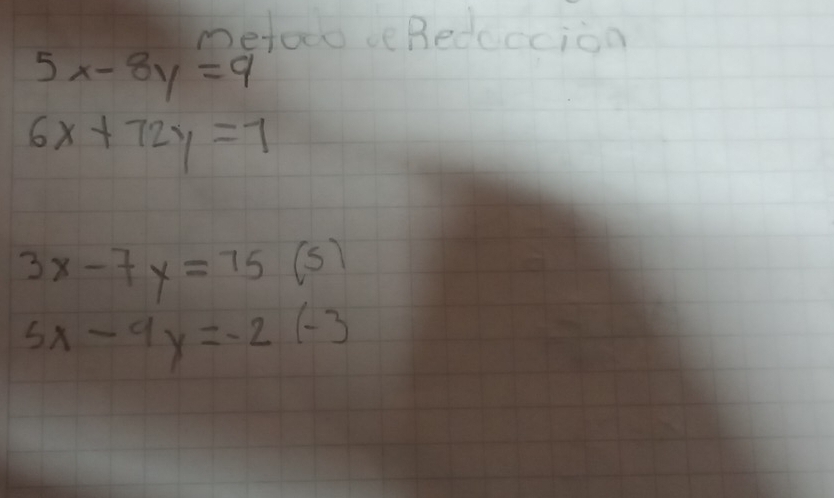 metodo de Reducción
5x - 8y = 9
6x + 12y = 1
3x - 7y = 15 (5)
5x - 9y = -2 (-3